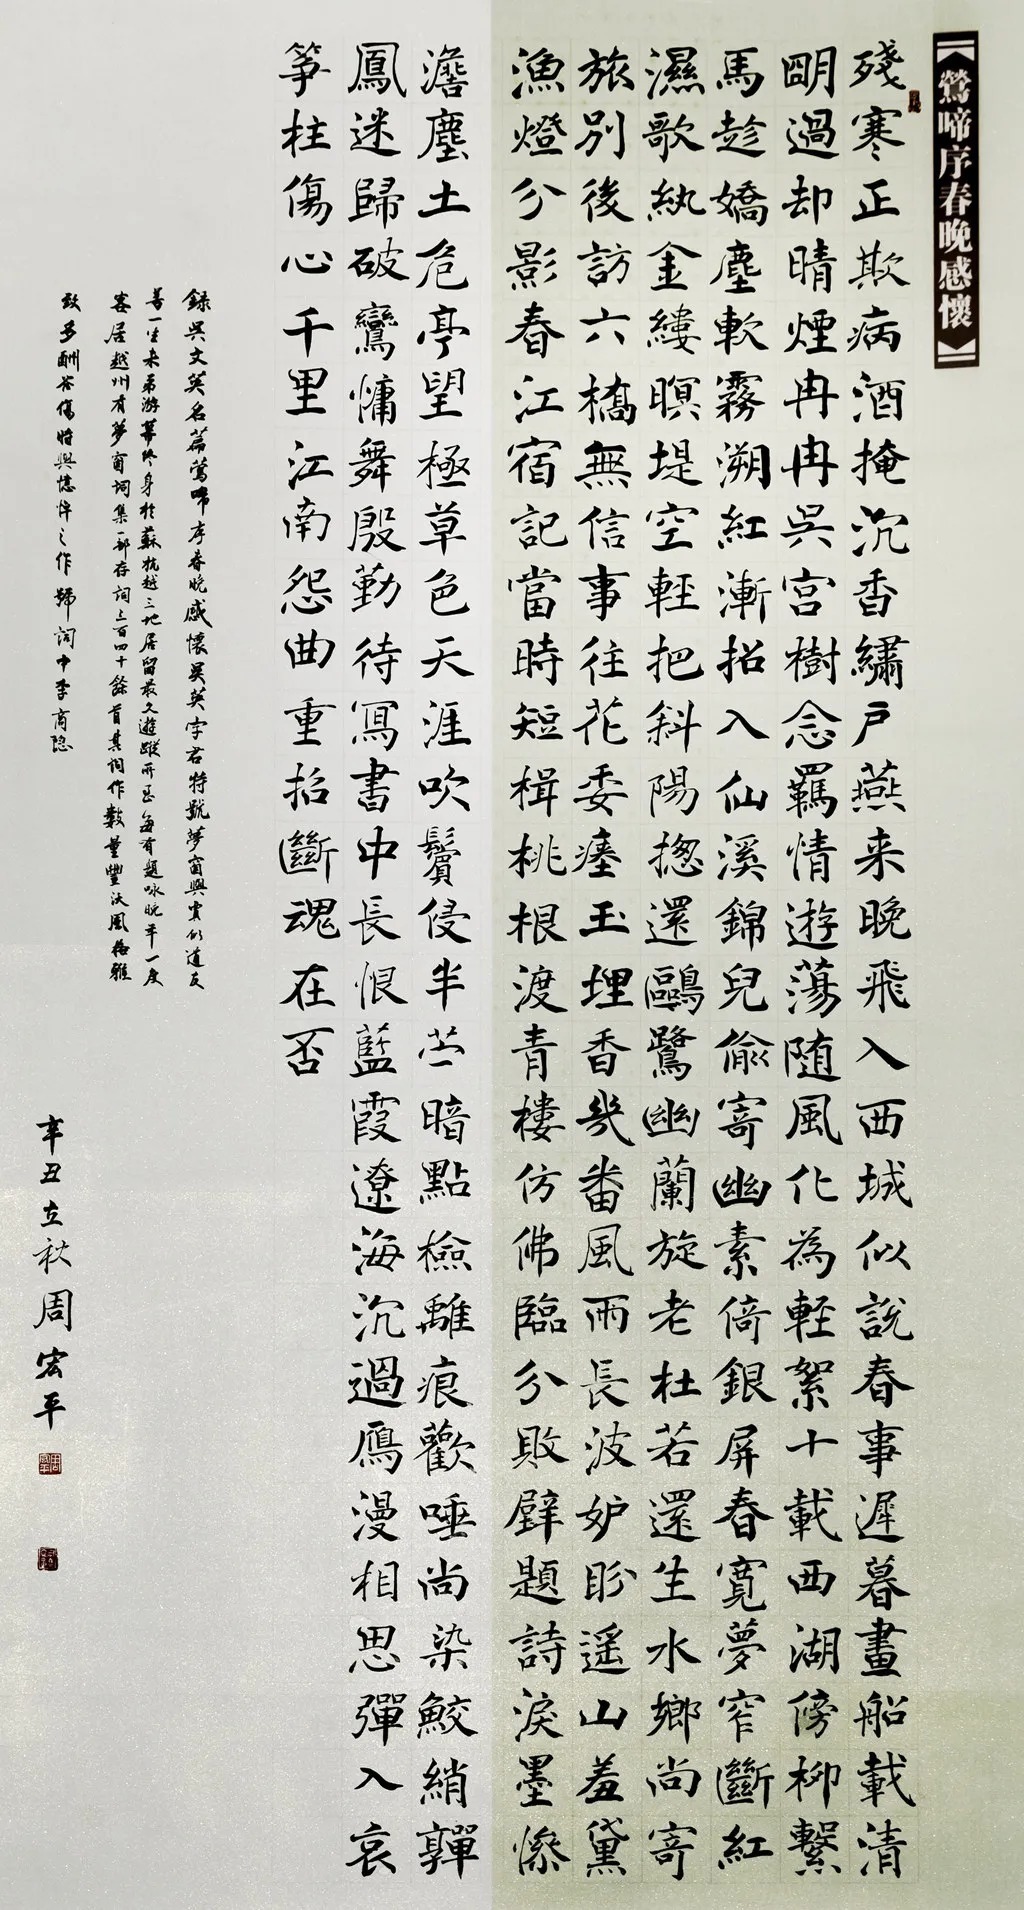 【鶯啼序春晚感懷】
殘寒正欺病酒掩沉香繡戶燕来晚飛入西城似説春事遲暮畫船載清
明過却晴煙冉冉吳宮樹念羈情遊蕩随風化為軽絮十載西湖傍柳繫
馬趁嬌塵軟霧溯紅漸招入仙溪錦兒偷寄幽素倚銀屏春寬夢窄斷紅
濕歌紈金縷暝堤空軽把斜陽揔還鷗鷺幽蘭旋老杜若還生水鄉尚寄
旅別後訪六橋無信事往花委瘞玉埋香幾番風雨長波妒盼遥山羞黛
漁燈分影春江宿記當時短楫桃根渡青樓仿佛臨分敗壁題詩淚墨慘
澹塵土危亭望極草色天涯吹鬢侵半苎暗點檢離痕歡唾尚染鮫綃亸
鳳迷歸破鸞慵舞殷勤待寫書中長恨藍霞遼海沉過鴈漫相思彈入哀
筝柱傷心千里江南怨曲重招斷魂在否
錄吳文英名篇鶯啼序春晚感懷吳英字君特號夢窗與賈似道友
善一生未第游幕終身於蘇杭越三地居留最久遊蹤所至每有題咏晚年一度
客居越州有夢窗詞集一部存詞三百四十餘首其詞作數量豐沃風格雅
致多酬答傷時與憶悼之作號詞中李商隐
辛丑立秋周宏平